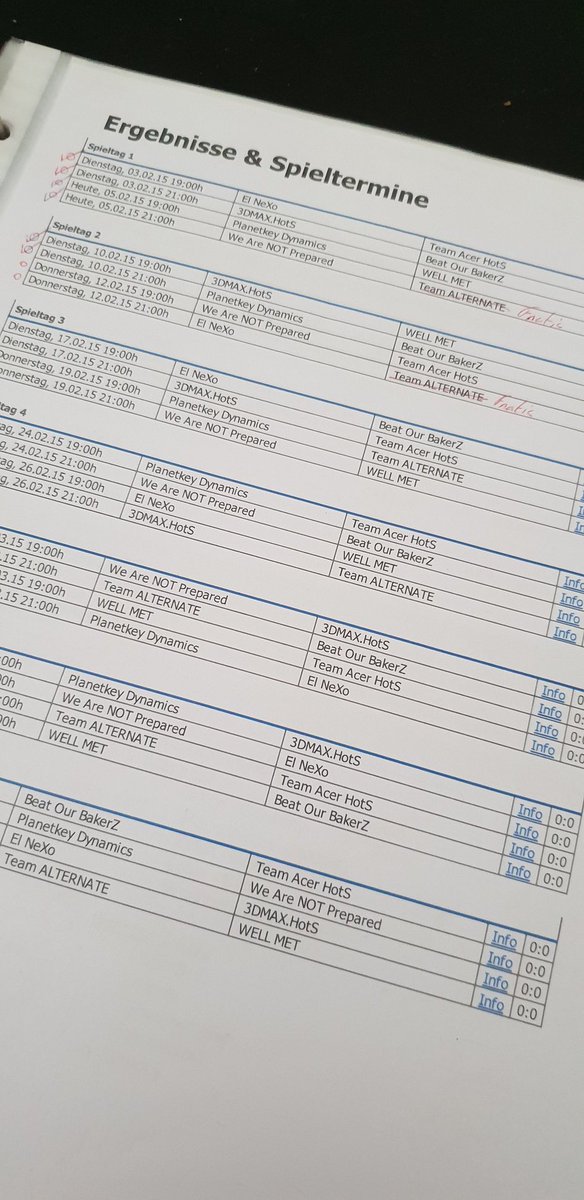 Ergebnisse & Spieltermine
Spieltag 1
Dienstag, 03.02.15 19:00h El NeXo Team Acer HotS
Dienstag, 03.02.15 21:00h 3DMAX.HotS Beat Our BakerZ
Heute, 05.02.15 19:00h Planetkey Dynamics WELL MET
Heute, 05.02.15 21:00h We Are NOT Prepared Team ALTERNATE Fnatic
Spieltag 2
Dienstag, 10.02.15 19:00h 3DMAX.HotS WELL MET
Dienstag, 10.02.15 21:00h Planetkey Dynamics Beat Our BakerZ
Donnerstag, 12.02.15 19:00h We Are NOT Prepared Team Acer HotS
Donnerstag, 12.02.15 21:00h El NeXo Team ALTERNATE Fnatic
Spieltag 3
Dienstag, 17.02.15 19:00h El NeXo Beat Our BakerZ
Dienstag, 17.02.15 21:00h 3DMAX.HotS Team Acer HotS
Donnerstag, 19.02.15 19:00h Planetkey Dynamics Team ALTERNATE
onnerstag, 19.02.15 21:00h We Are NOT Prepared WELL MET
tag 4
tag, 24.02.15 19:00h Planetkey Dynamics Team Acer HotS Info
g, 24.02.15 21:00h We Are NOT Prepared Beat Our BakerZ Info
ag, 26.02.15 19:00h El NeXo WELL MET Info
g, 26.02.15 21:00h 3DMAX.HotS Team ALTERNATE Info
03.15 19:00h We Are NOT Prepared 3DMAX.HotS Info 0
.15 21:00h Team ALTERNATE Beat Our BakerZ Info 0:
03.15 19:00h WELL MET Team Acer HotS Info 0:
.15 21:00h Planetkey Dynamics El NeXo Info 0:0
:00h Planetkey Dynamics 3DMAX.HotS Info 0:0
00h We Are NOT Prepared El NeXo Info 0:0
:00h Team ALTERNATE Team Acer HotS Info 0:0
00h WELL MET Beat Our BakerZ Info 0:0
Beat Our BakerZ Team Acer HotS Info 0:0
Planetkey Dynamics We Are NOT Prepared Info 0:0
El NeXo 3DMAX.HotS Info 0:0
Team ALTERNATE WELL MET Info 0:0